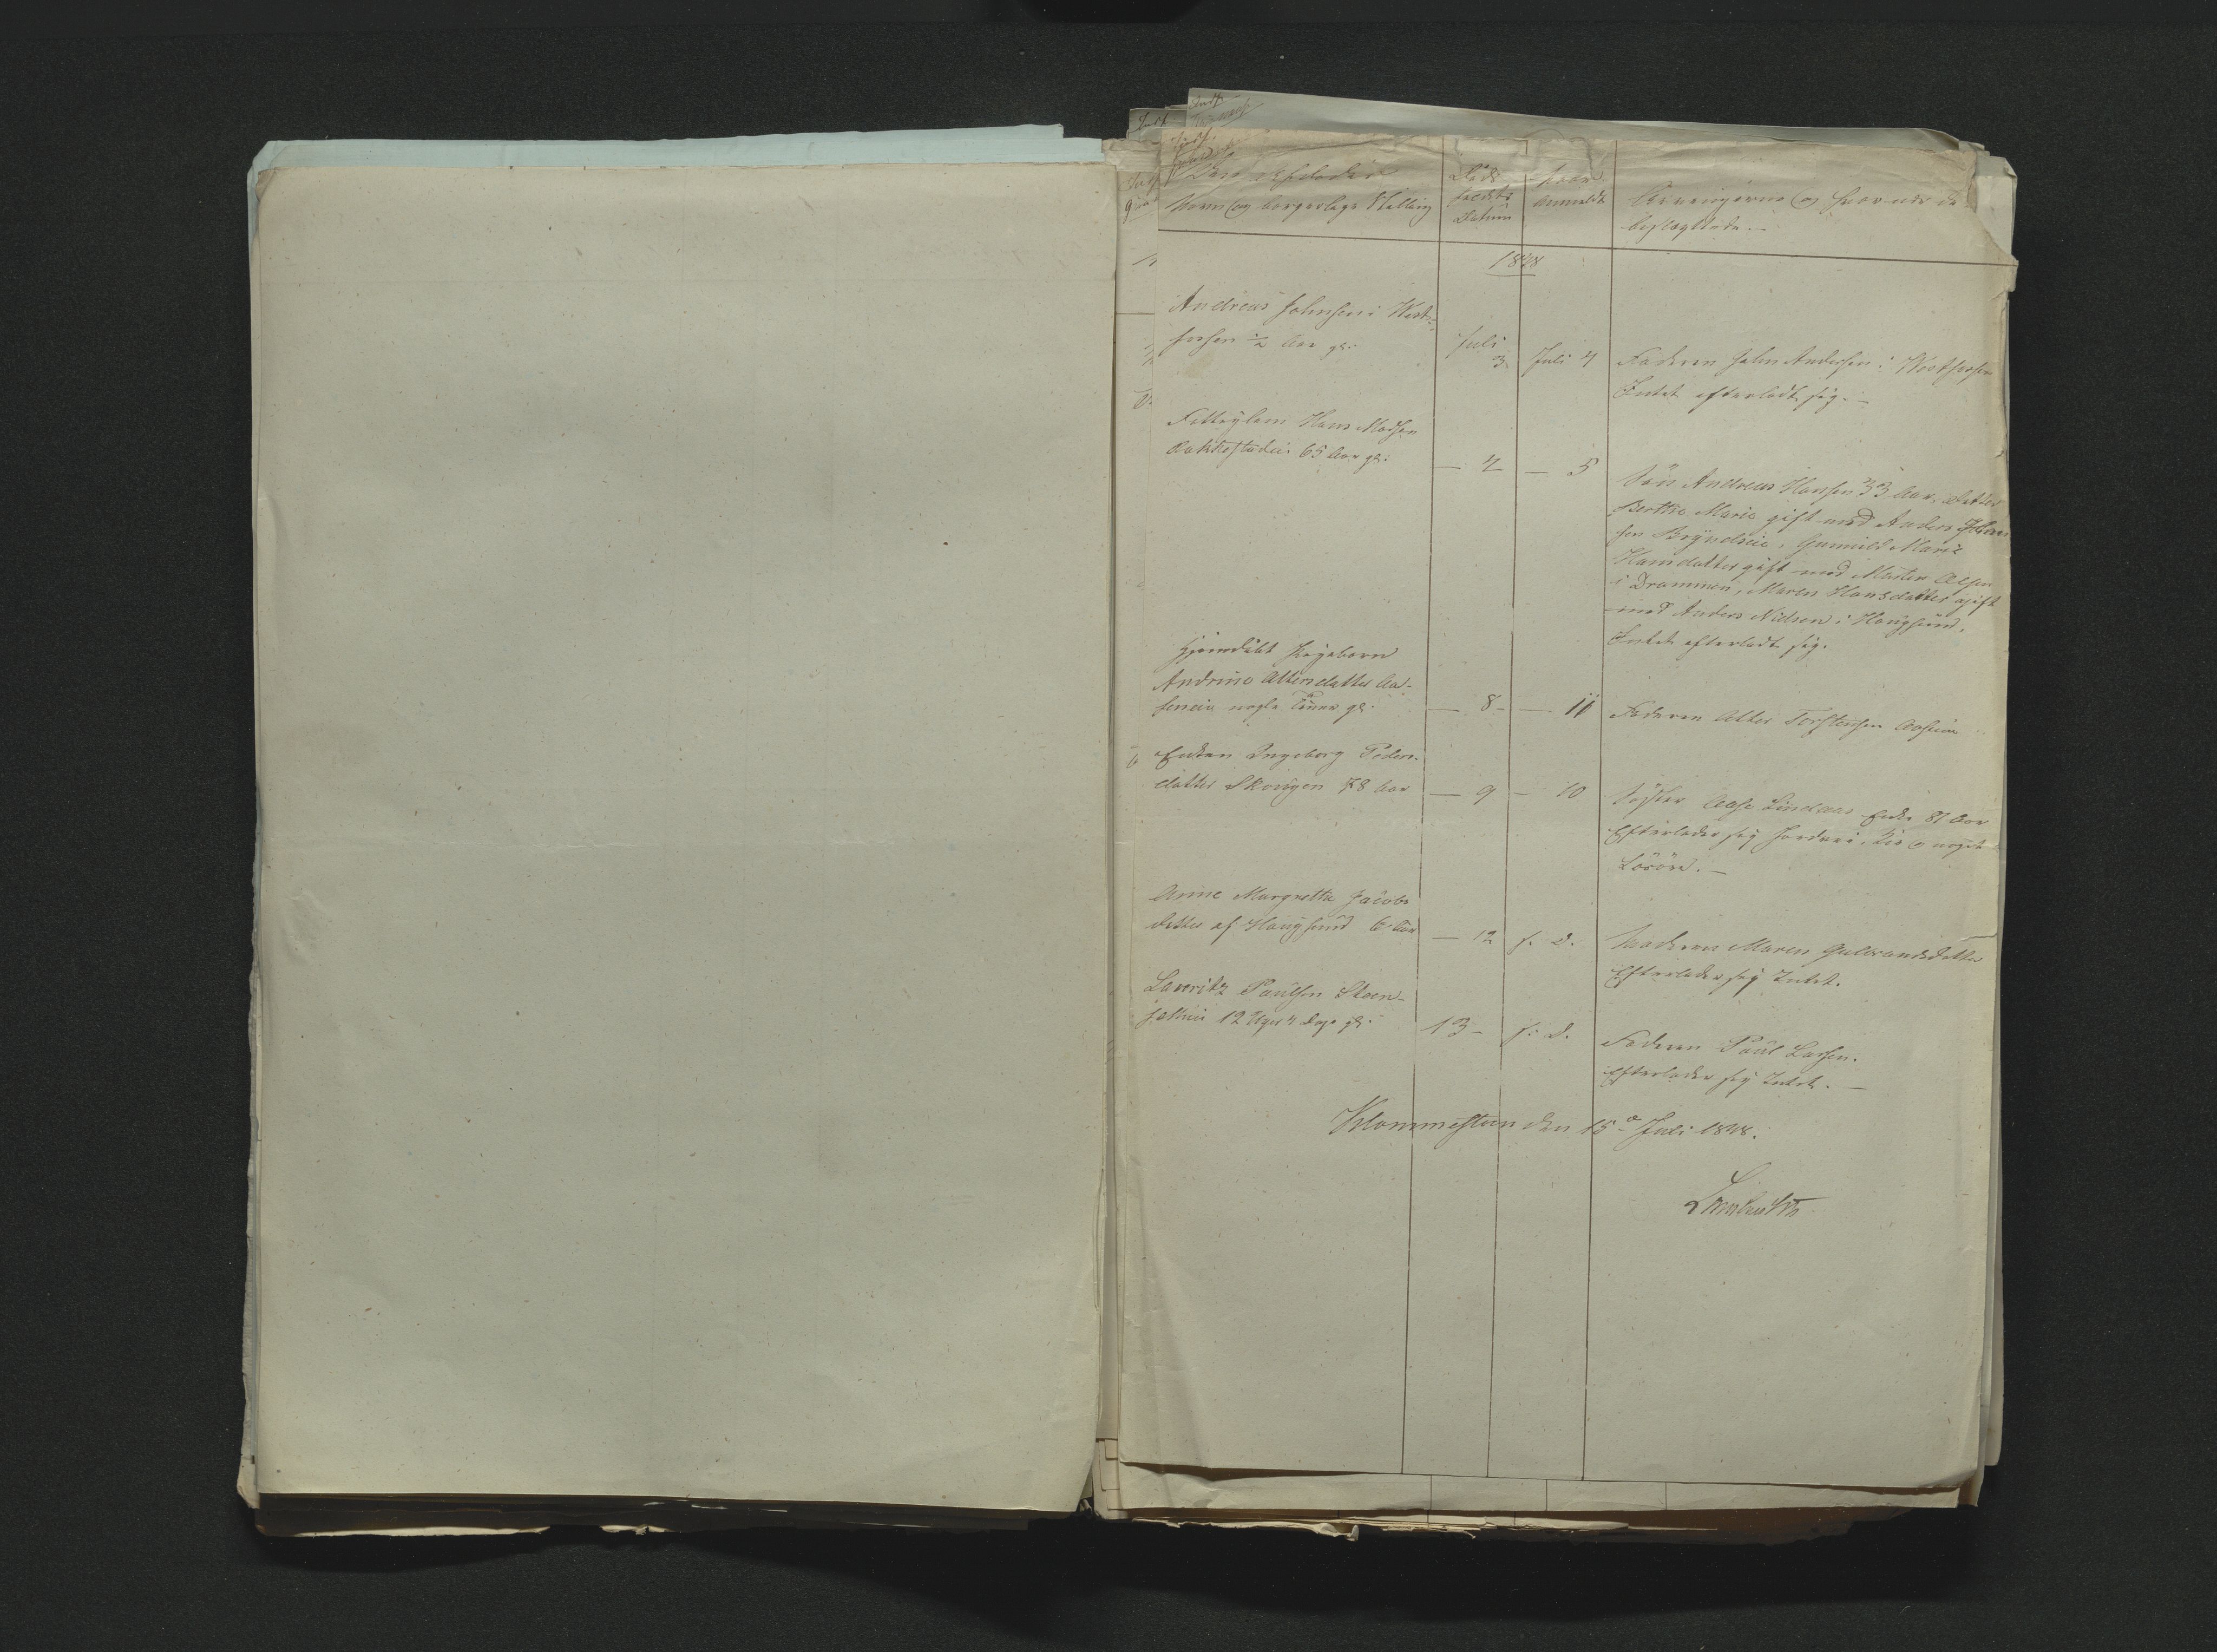 Den afdødes
Navn og borgerlige Stilling
Døds
faldets
Datum
Naar
anmeldt
Arvingerne og hvor nær de
beslægtede.
1848
Andreas Johnsen i Vest-
fossen ½ Aar gl:
Juli
3
Juli 4
Faderen John Andersen i Vestfossen
Intet efterladt sig.
Fattiglem Hans Madsen
65 Aar gl:
— 4
— 5
Søn Andreas Hansen 33 Aar, Datter
Berthe Marie gift med Anders
sen Gunnild Marie
Hansdatter gift med Morten Olsen
i Drammen, Maren Hansdatter gift
med Anders Nielsen i Hougsund.
Intet efterladt sig.
Hjemdøbt Pigebarn
Andrine Attersdatter Aas-
seneie nogle Timer gl:
— 8 —
— 11
Faderen Atter Torstensen
Enken Ingeborg Peders-
datter Skougen 78 Aar
— 9
— 10
Søster Aase Lindaas Enke 81 Aar
Efterlader sig og noget
Løsøre.
Anne Margrethe Jacobs
datter af Hougsund 6 Aar
— 12
s. D.
Moderen Maren Gulbrandsdatter
Efterlader sig Intet.
Lauritz Paulsen Steen-
12 Uger 4 Dage gl:
13 —
s. D.
Faderen Paul Larsen.
Efterlader sig Intet.
den 15de Juli 1848.